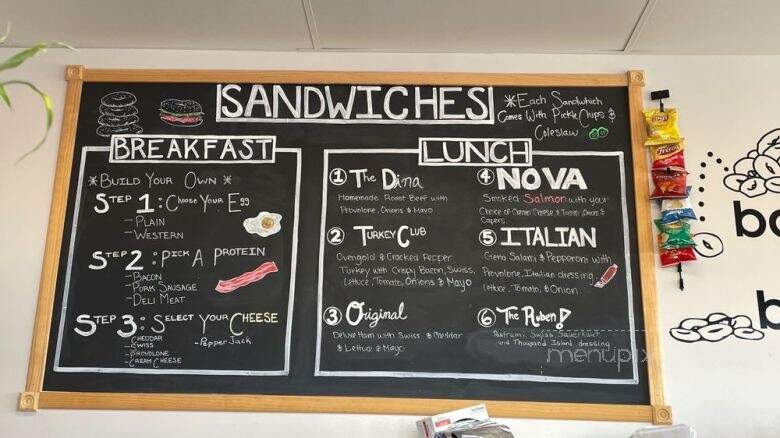 SANDWICHES
*Each Sandwhich
Comes With Pickle Chips &
Coleslaw
BREAKFAST
*BUILD YOUR OWN*
STEP 1: Choose Your Egg
- PLAIN
- WESTERN
STEP 2: PICK A PROTEIN
- BACON
- PORK SAUSAGE
- DELI MEAT
STEP 3: SELECT YOUR CHEESE
- CHEDDAR
- SWISS
- PROVOLONE
- CREAM CHEESE
- Pepper Jack
LUNCH
1 The Dina
Homemade Roast Beef with
Provolone, Onions & Mayo
2 TURKEY CLUB
Ovengold & Cracked Pepper
Turkey with Crispy Bacon, Swiss,
Lettuce, Tomato, Onions & Mayo
3 Original
Deluxe Ham with Swiss & Cheddar
& Lettuce & Mayo
4 NOVA
Smoked Salmon with your
Choice of Cream Cheese & Tomato, Onions &
Capers
5 ITALIAN
Genoa Salami & Pepperoni with
Provolone, Italian dressing
Lettuce, Tomato, & Onion
6 The Ruben!
Pastrami, Swiss, Sauerkraut
and Thousand Island dressing
menupix
Lay's
Fritos
ba
b